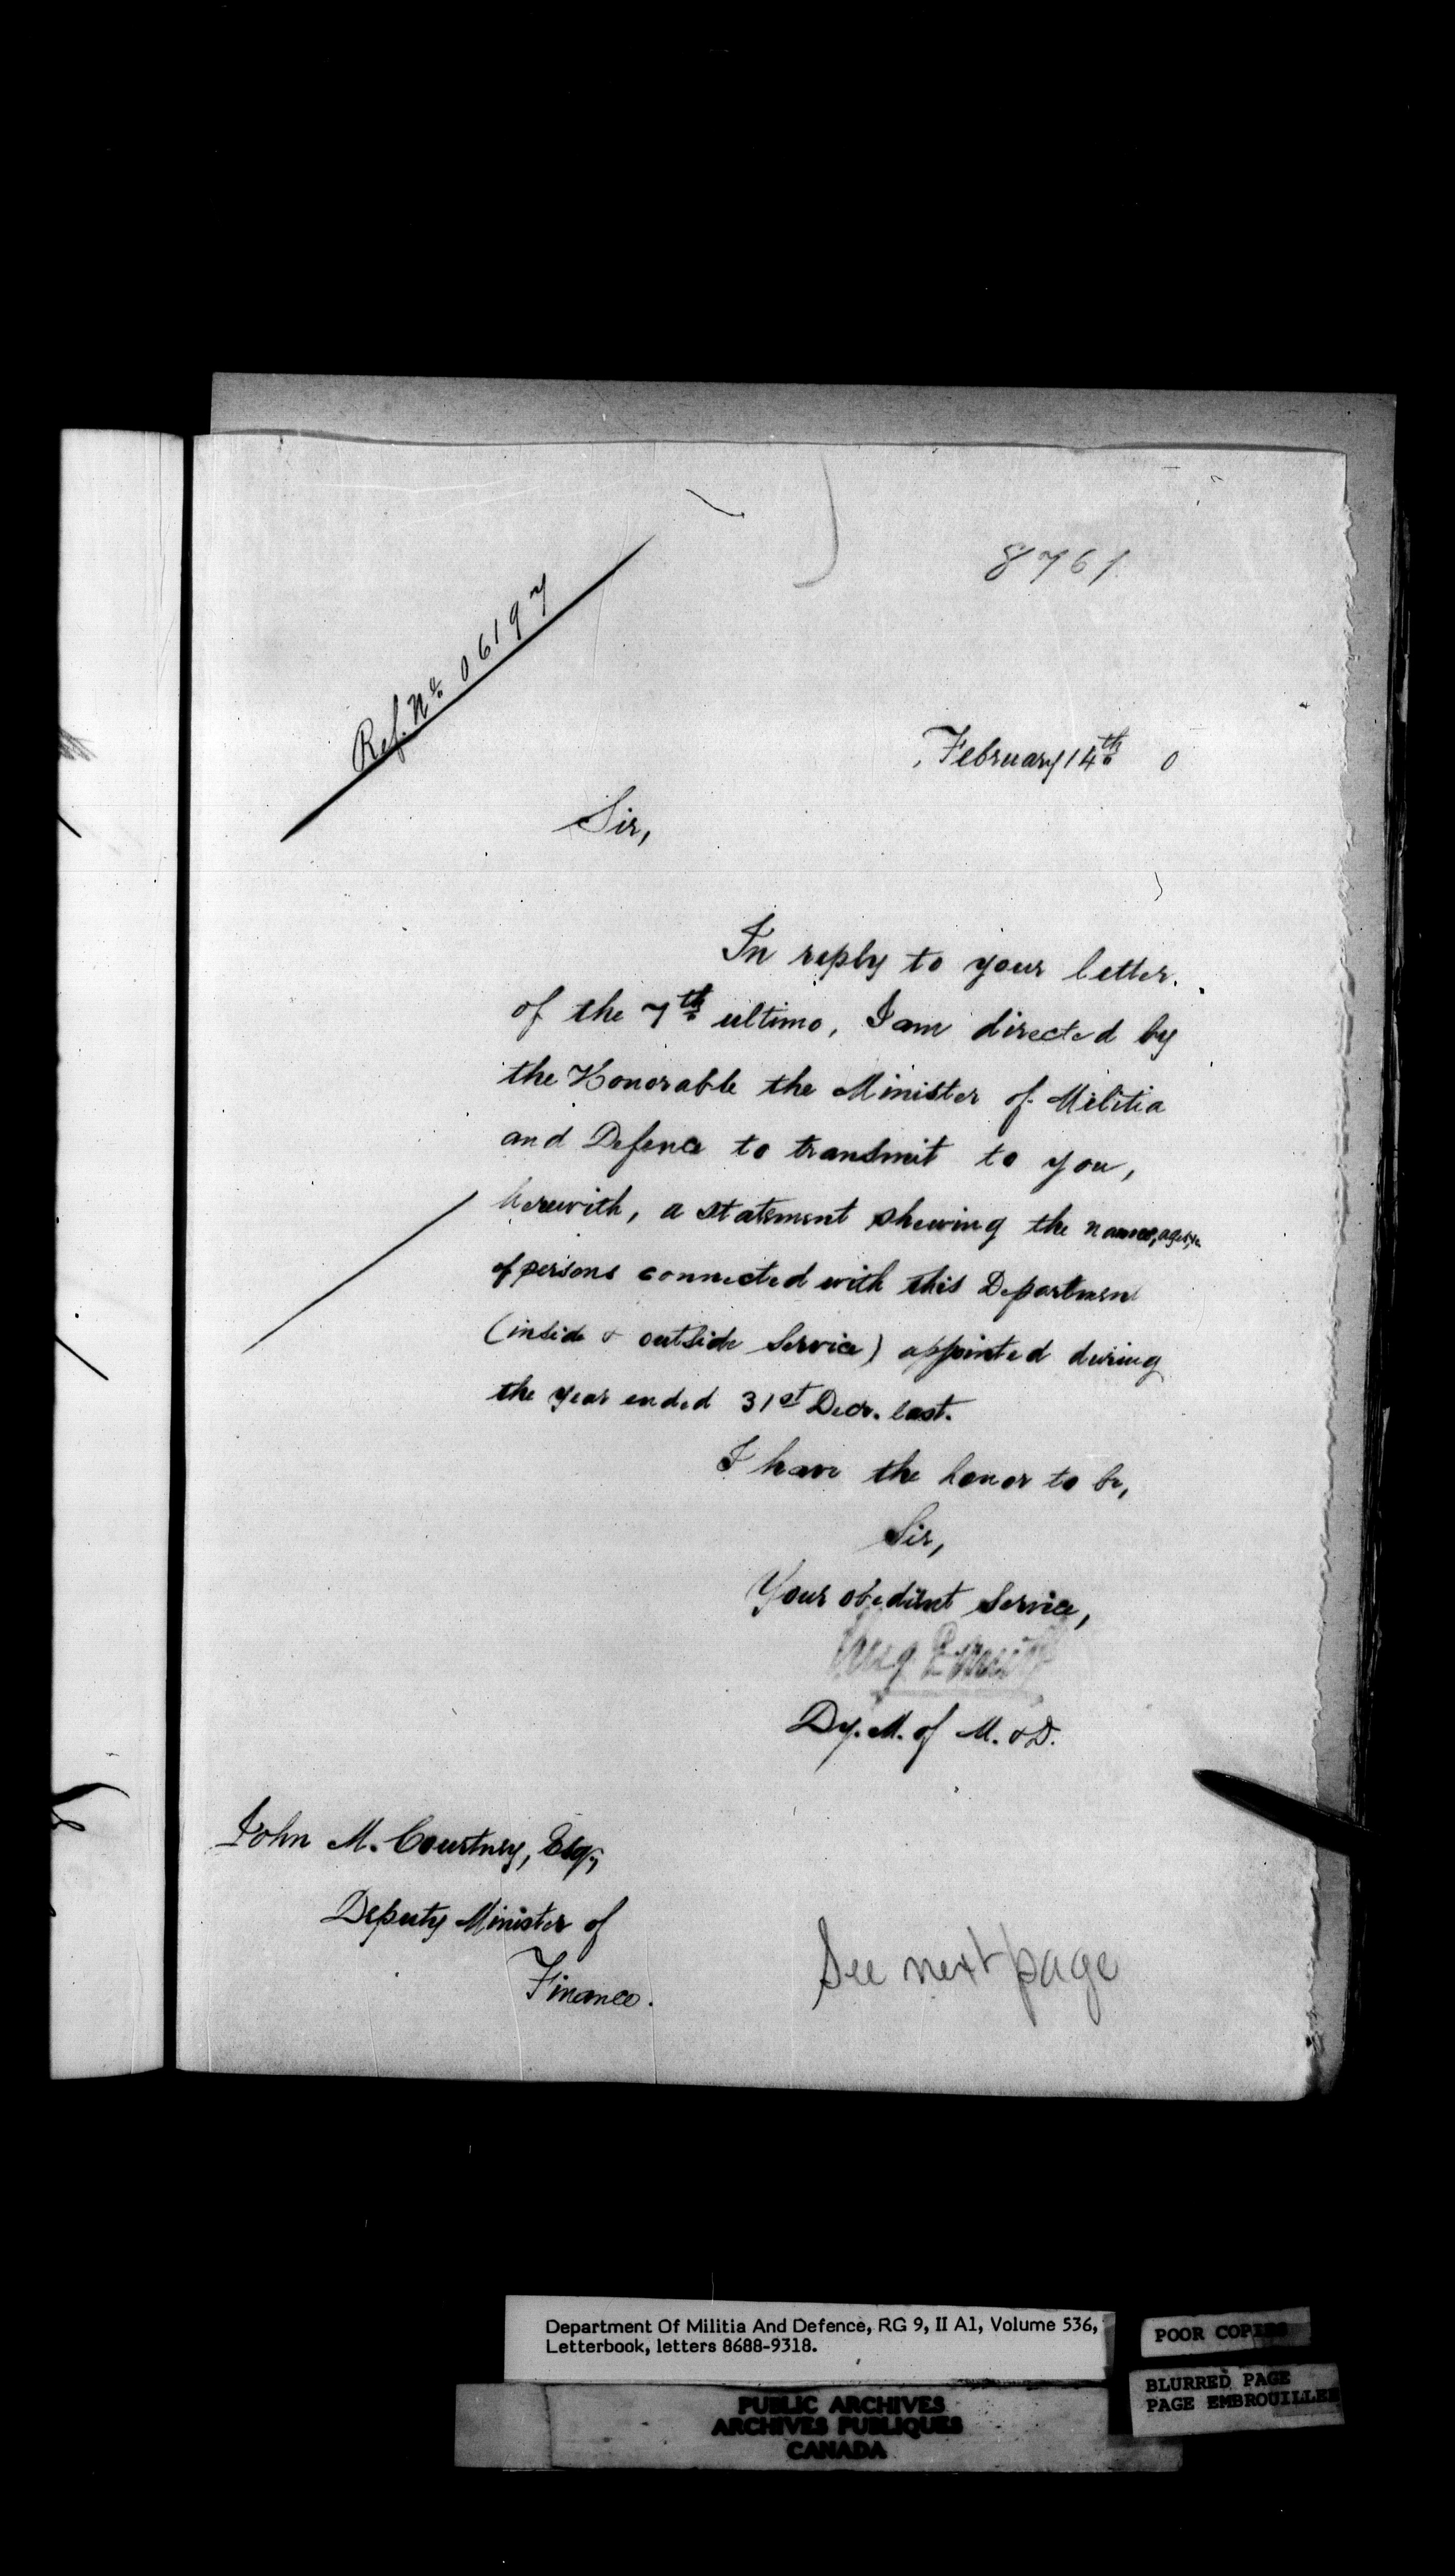 8761
Ref. No. 06197
February 14th 0
Sir,
In reply to your letter
of the 7th ultimo, I am directed by
the Honorable the Minister of Militia
and Defence to transmit to you,
herewith, a statement shewing the names, ages, &c.
of persons connected with this Department
(inside & outside Service) appointed during
the year ended 31st Decr. last.
I have the honor to be,
Sir,
Your obedient Service,
Dy. M. of M. & D.
John M. Courtney, Esq.,
Deputy Minister of
Finance.
See next page
Department Of Militia And Defence, RG 9, II A1, Volume 536,
Letterbook, letters 8688-9318.
POOR COPIES
BLURRED PAGE
PAGE EMBROUILLEE
PUBLIC ARCHIVES
ARCHIVES PUBLIQUES
CANADA